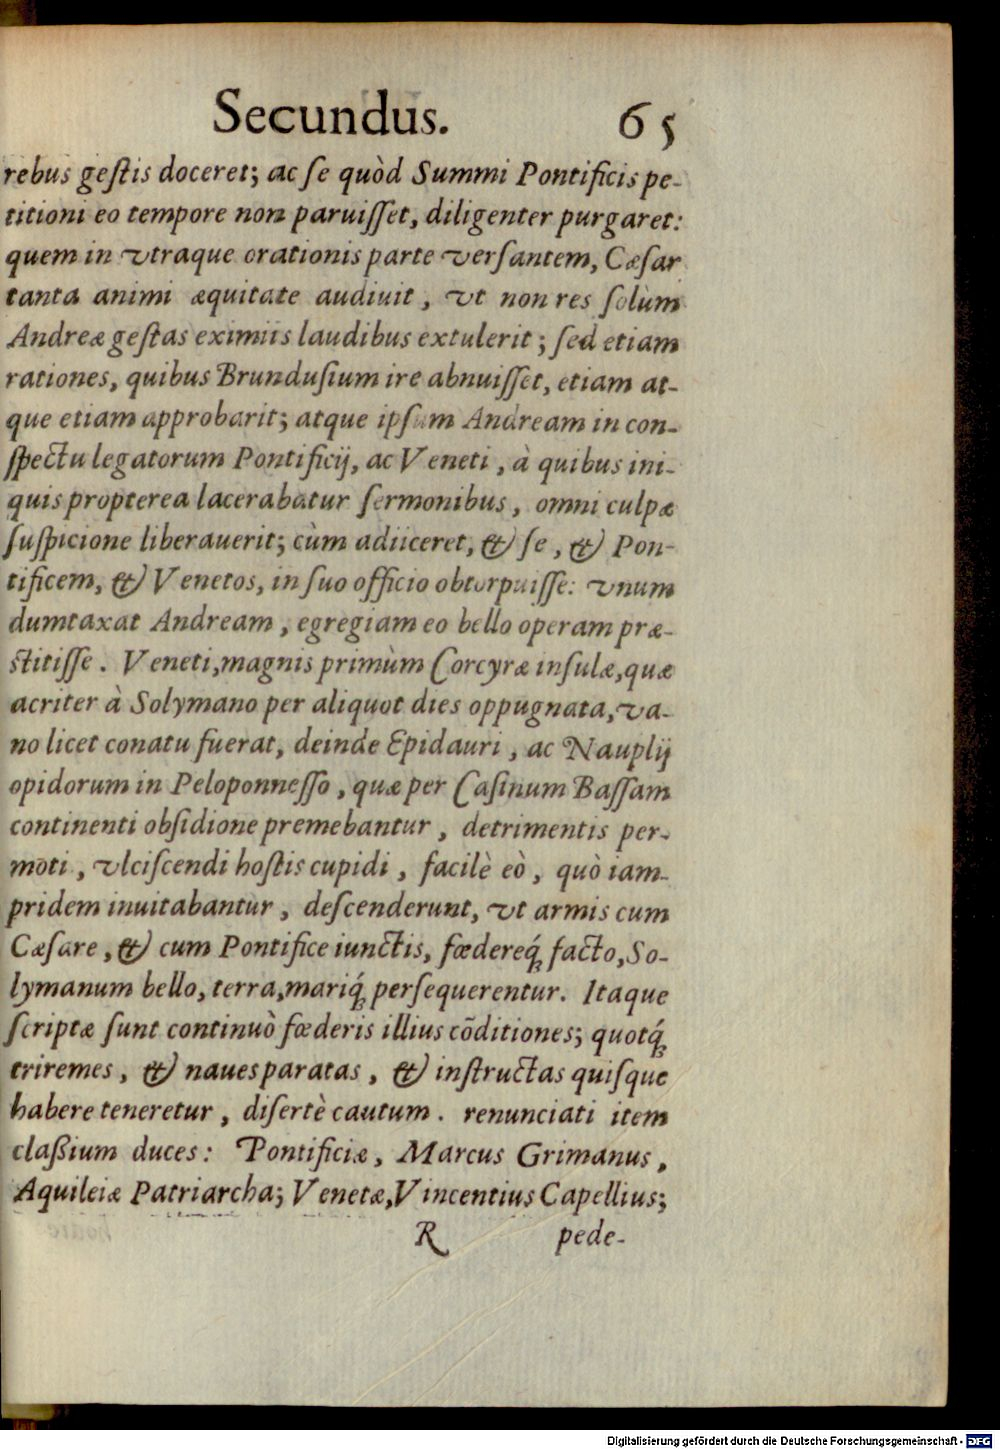 Secundus. 65
rebus geſtis doceret; ac ſe quòd Summi Pontificis pe-
titioni eo tempore non paruiſſet, diligenter purgaret:
quem in vtraque orationis parte verſantem, Cæſar
tanta animi æquitate audiuit, vt non res ſolùm
Andreæ geſtas eximiis laudibus extulerit; ſed etiam
rationes, quibus Brunduſium ire abnuiſſet, etiam at-
que etiam approbarit; atque ipſum Andream in con-
ſpectu legatorum Pontificij, ac Veneti, à quibus ini-
quis propterea lacerabatur ſermonibus, omni culpæ
ſuſpicione liberauerit; cùm adiiceret, & ſe, & Pon-
tificem, & Venetos, in ſuo officio obtorpuiſſe: vnum
dumtaxat Andream, egregiam eo bello operam præ-
ſtitiſſe. Veneti, magnis primùm Corcyræ inſulæ, quæ
acriter à Solymano per aliquot dies oppugnata, va-
no licet conatu fuerat, deinde Epidauri, ac Nauplij
opidorum in Peloponneſſo, quæ per Caſinum Baſſam
continenti obſidione premebantur, detrimentis per-
moti, vlciſcendi hoſtis cupidi, facilè eò, quò iam-
pridem inuitabantur, deſcenderunt, vt armis cum
Cæſare, & cum Pontifice iunctis, fœdereq́; facto, So-
lymanum bello, terra, mariq́; perſequerentur. Itaque
ſcriptæ ſunt continuò fœderis illius cōditiones; quotq́;
triremes, & naues paratas, & inſtructas quiſque
habere teneretur, diſertè cautum. renunciati item
claßium duces: Pontificiæ, Marcus Grimanus,
Aquileiæ Patriarcha; Venetæ, Vincentius Capellius;
R pede-
Digitalisierung gefördert durch die Deutsche Forschungsgemeinschaft - DFG